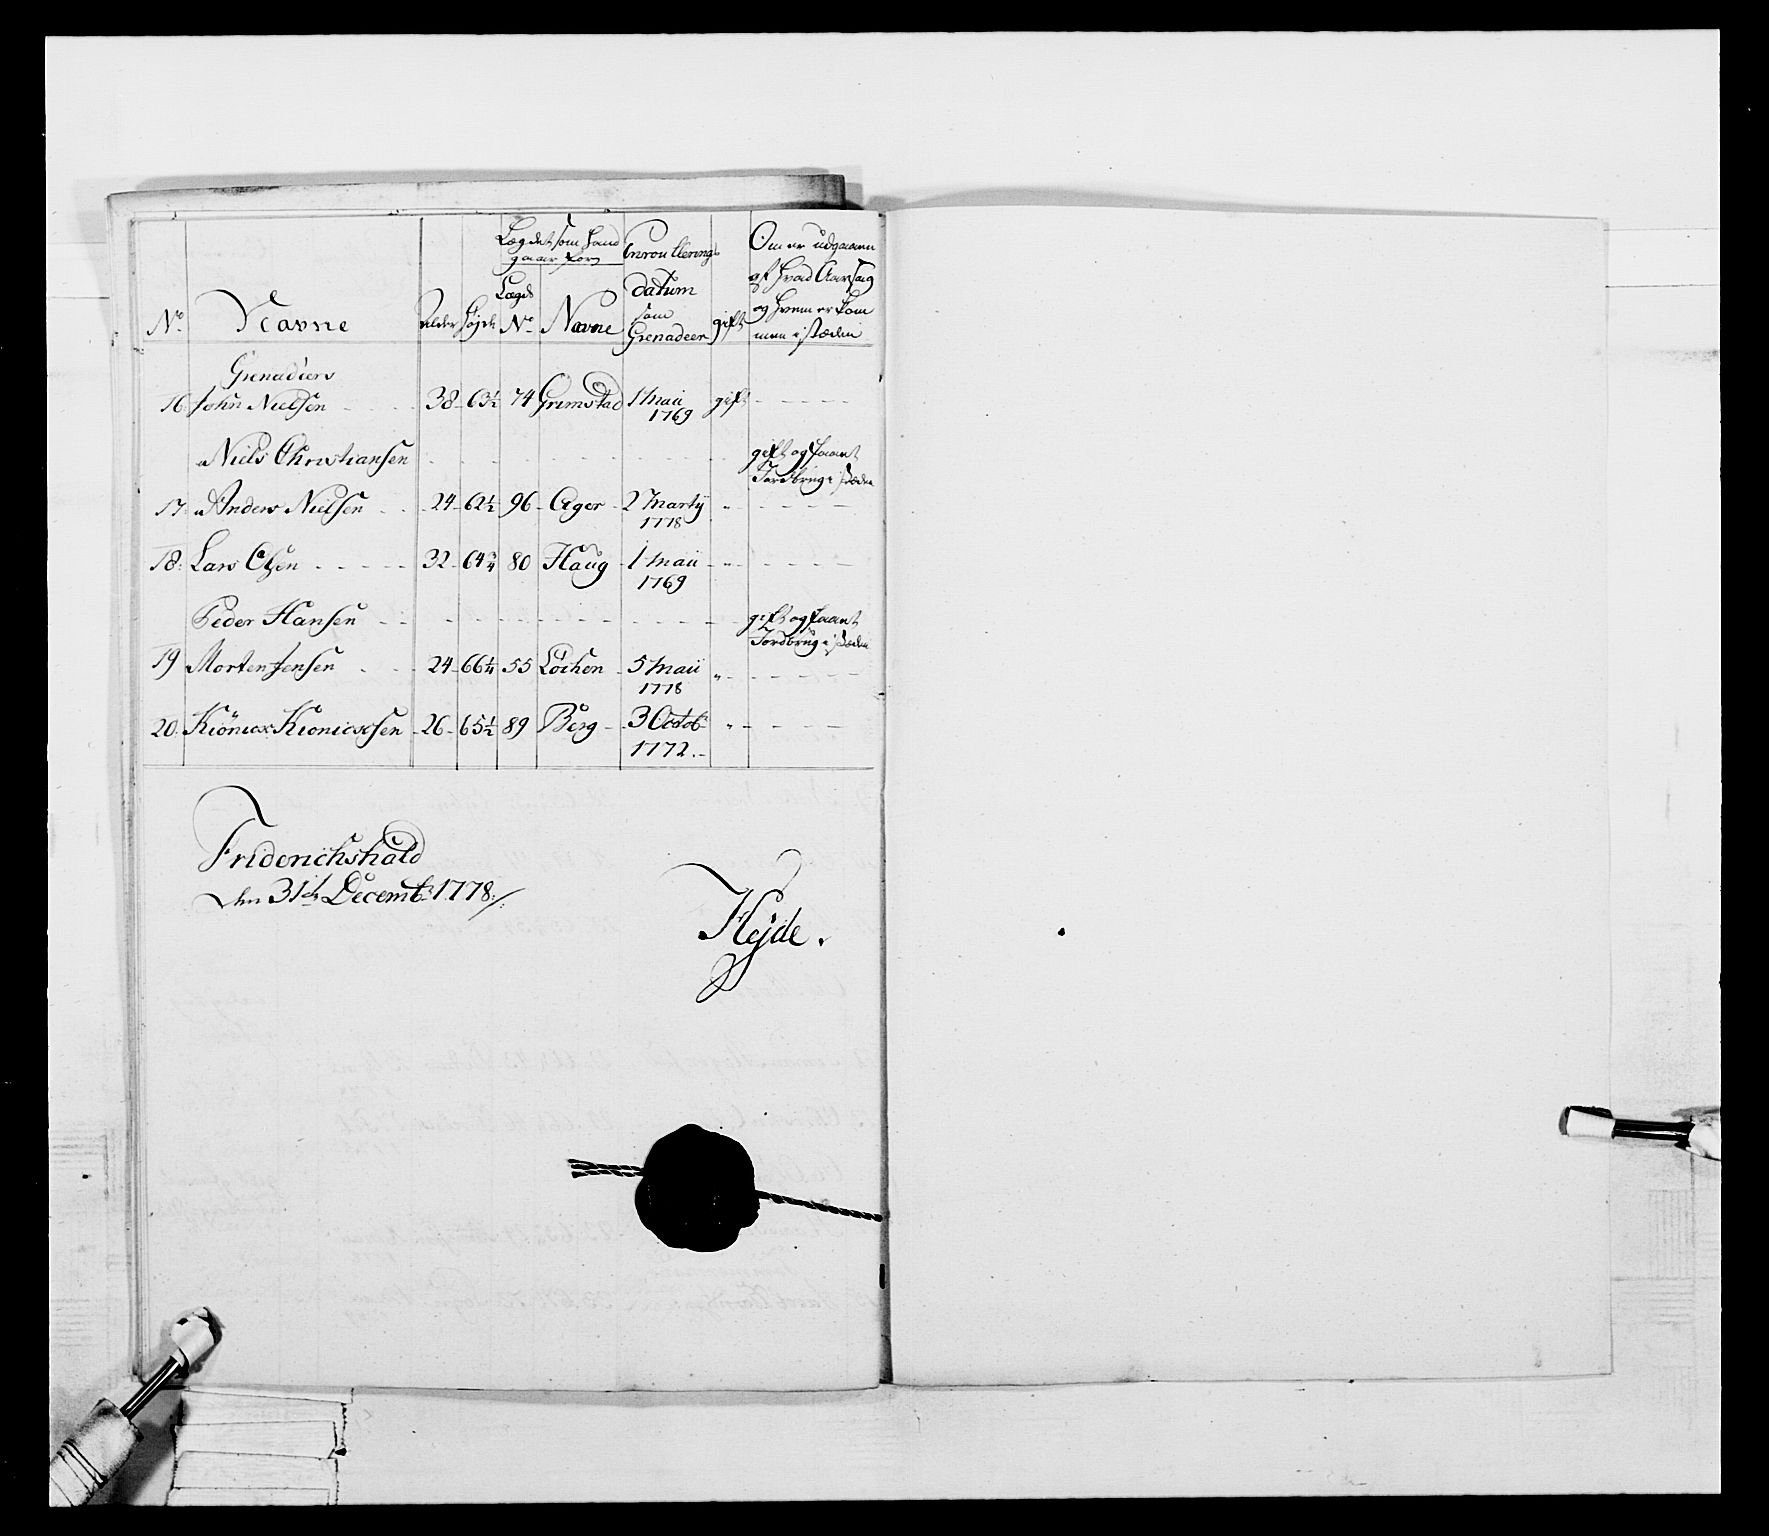 No. Navne Alder Høyde Lægdet som hand gaar for Lægds No. Navne Enroullerings datum som Grenadeer gift Om er udgaaen af hvad Aarsag og hvem er kommen i stæden
Grenadiers
16. John Nielsen - - - 38 - 63½ 74 Grimstad 1 Maii 1769 gift - - - - -
Niels Christiansen - - - - - - - gift og faaet Jordbrug i stæden
17. Anders Nielsen - - 24 - 62½ 96 - Ager - 2 Martij 1778 " - - - - -
18. Lars Olsen - - - - - 32 - 64¾ 80 Haug - 1 Maii 1769 - " - - - - -
Peder Hansen - - - - - - - - - gift og faaet Jordbrug i stæden
19 Morten Jensen - - - 24 - 66¼ 55 Löchen - 5 Maii 1778 " - - - - -
20. - 26 - 65½ 89 Berg - - 3 Octobr 1772. - " - - - - -
Friderichshald
den 31te Decembr 1778 ./.
Hejde.